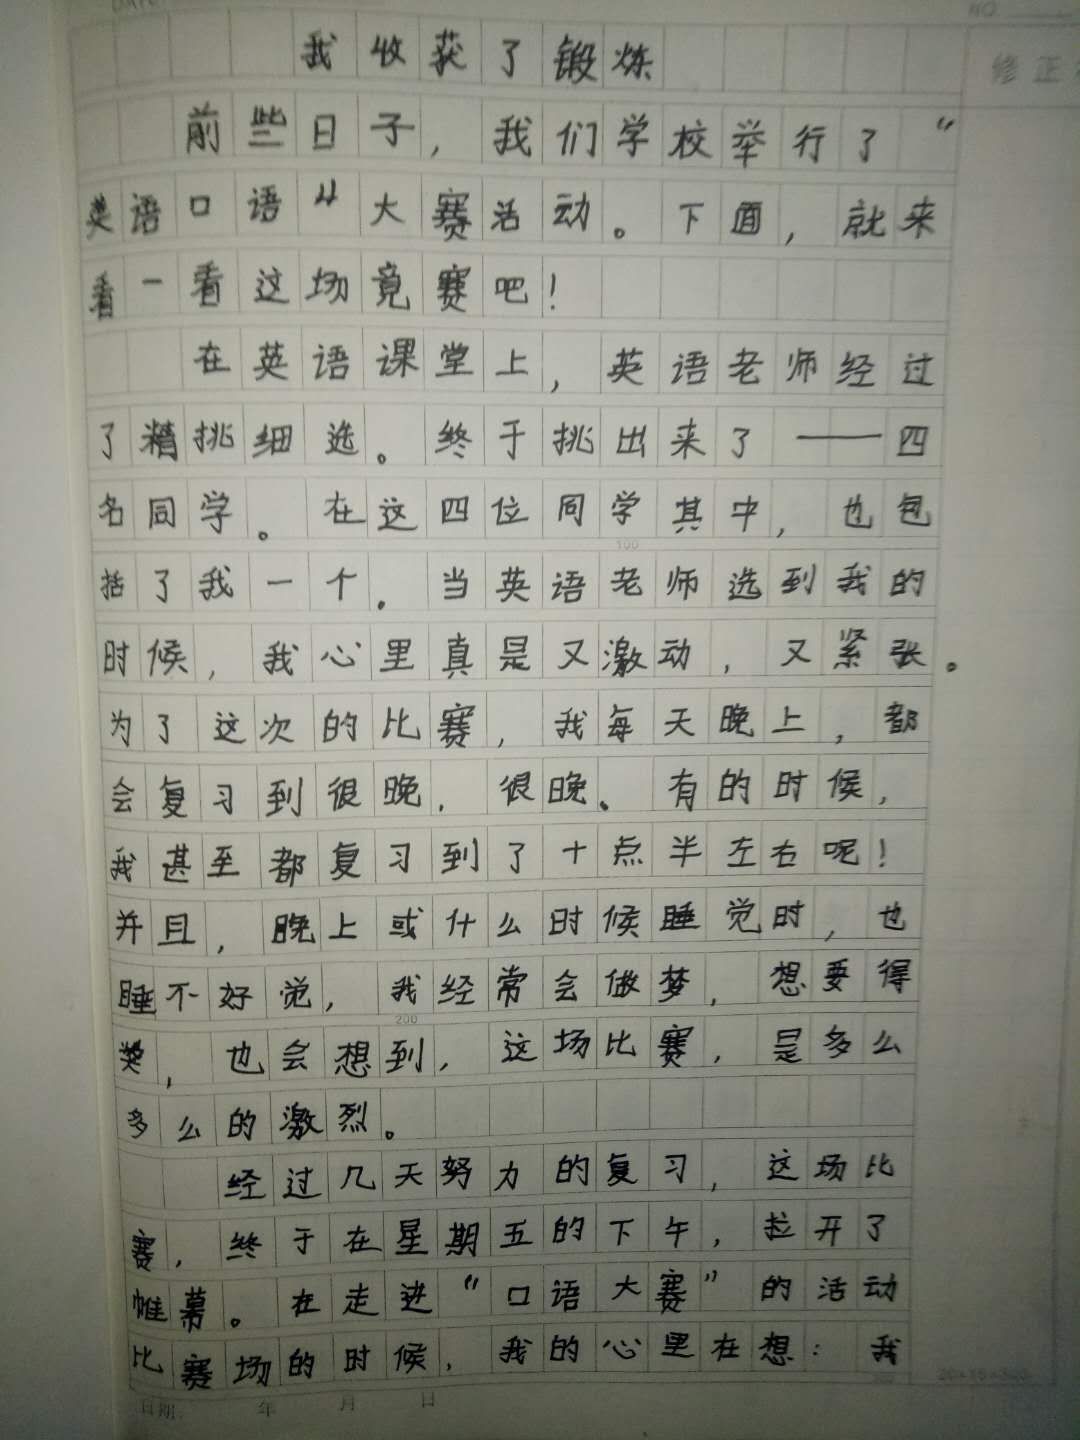 NO
修正
我收获了锻炼
前些日子，我们学校举行了“
英语口语”大赛活动。下面，就来
看一看这场竟赛吧！
在英语课堂上，英语老师经过
了精挑细选。终于挑出来了——四
名同学。在这四位同学其中，也包
100
括了我一个。当英语老师选到我的
时候，我心里真是又激动，又紧张。
为了这次的比赛，我每天晚上，都
会复习到很晚，很晚。有的时候，
我甚至都复习到了十点半左右呢！
并且，晚上或什么时候睡觉时，也
睡不好觉，我经常会做梦，想要得
200
奖，也会想到，这场比赛，是多么
多么的激烈。
经过几天努力的复习，这场比
赛，终于在星期五的下午，拉开了
帷幕。在走进“口语大赛”的活动
比赛场的时候，我的心里在想：我
日期： 年 月 日